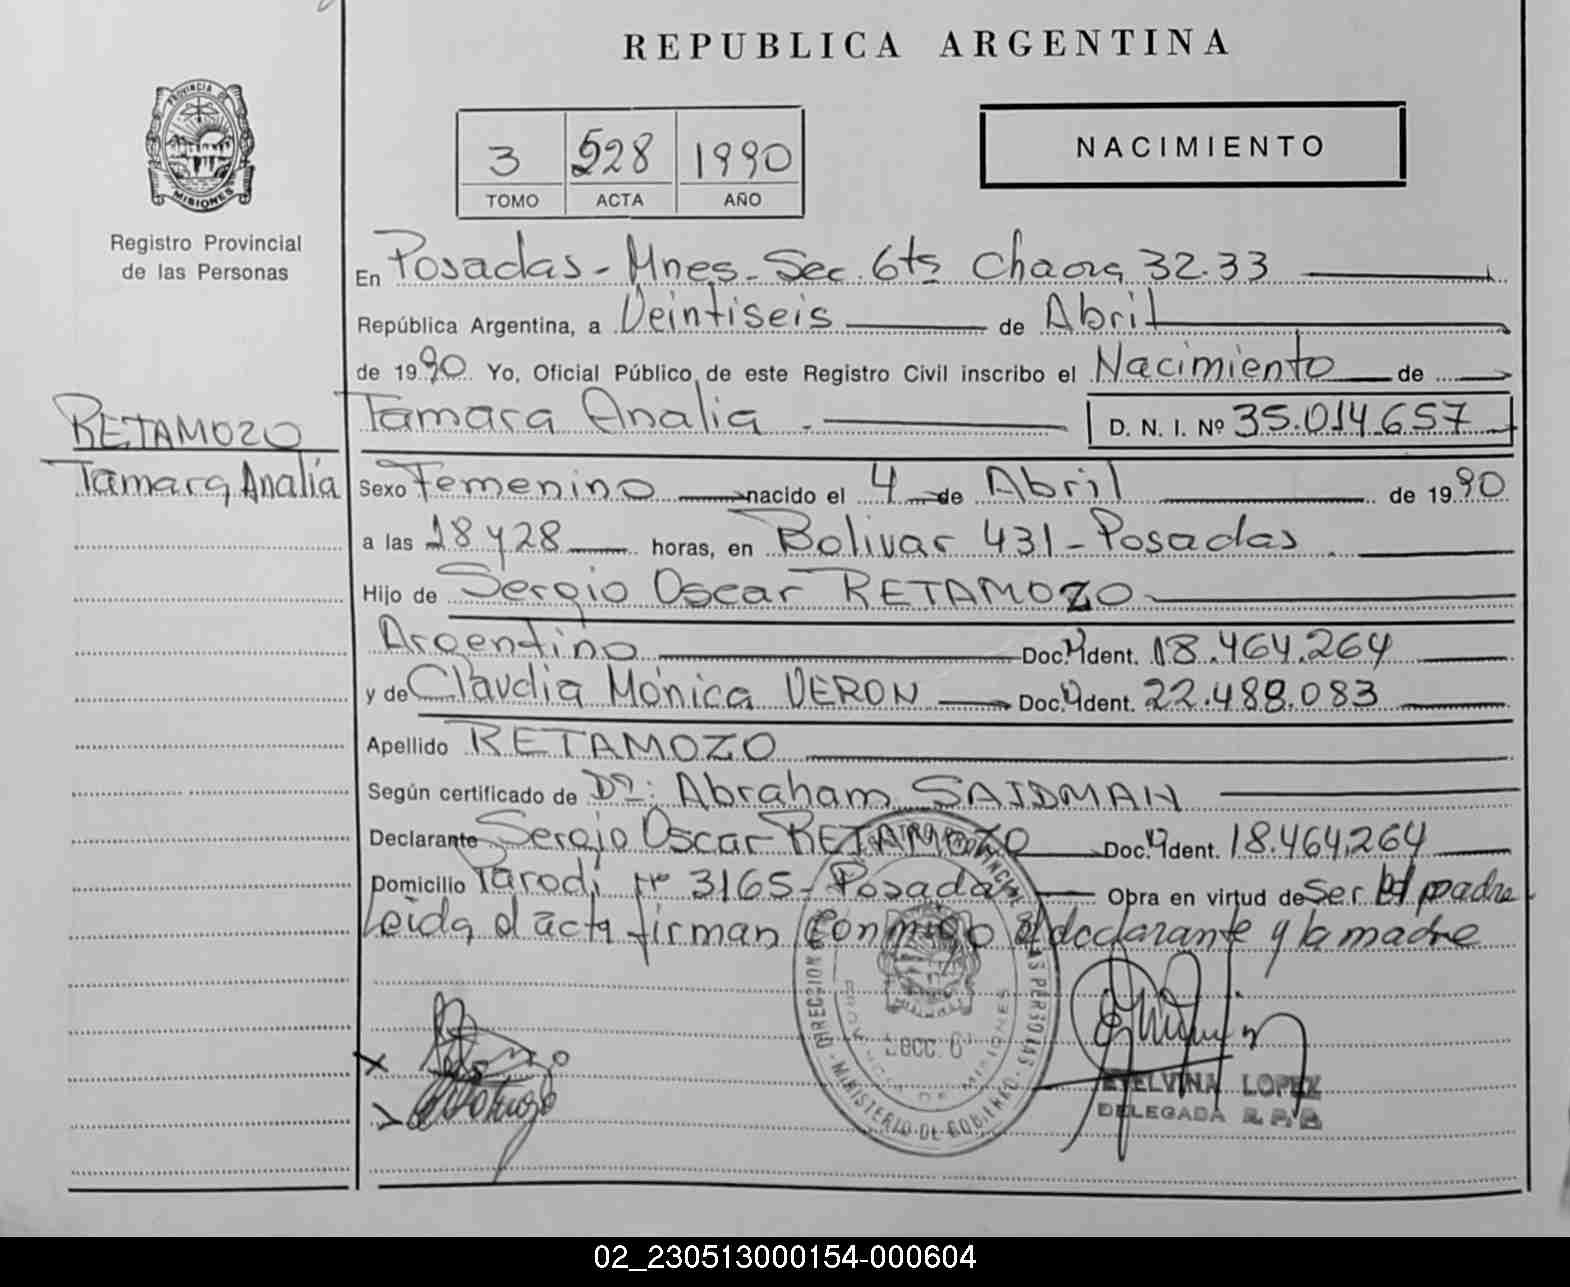 REPUBLICA ARGENTINA
PROVINCIA DE
MISIONES
Registro Provincial
de las Personas
3 528 1990
TOMO ACTA AÑO
NACIMIENTO
En Posadas - Mnes. Sec. 6ta Chacra 32.33
República Argentina, a Veintiseis de Abril
de 1990 Yo, Oficial Público de este Registro Civil inscribo el Nacimiento de
RETAMOZO
Tamara Analía
Tamara Analia D. N. I. Nº 35.014.657
Sexo Femenino nacido el 4 de Abril de 1990
a las 18 y 28 horas, en Bolivar 431 - Posadas
Hijo de Sergio Oscar RETAMOZO
Argentino Doc. Ident. 18.464.264
y de Claudia Mónica VERON Doc. Ident. 22.488.083
Apellido RETAMOZO
Según certificado de Dr: Abraham SAIDMAN
Declarante Sergio Oscar RETAMOZO Doc. Ident. 18.464.264
Domicilio Parodi nº 3165 - Posadas Obra en virtud de Ser el padre
Leida el acta firman conmigo el declarante y la madre
MINISTERIO DE GOBIERNO
SECC. 6
ETELVINA LOPEZ
DELEGADA R.P.P.
02_230513000154-000604